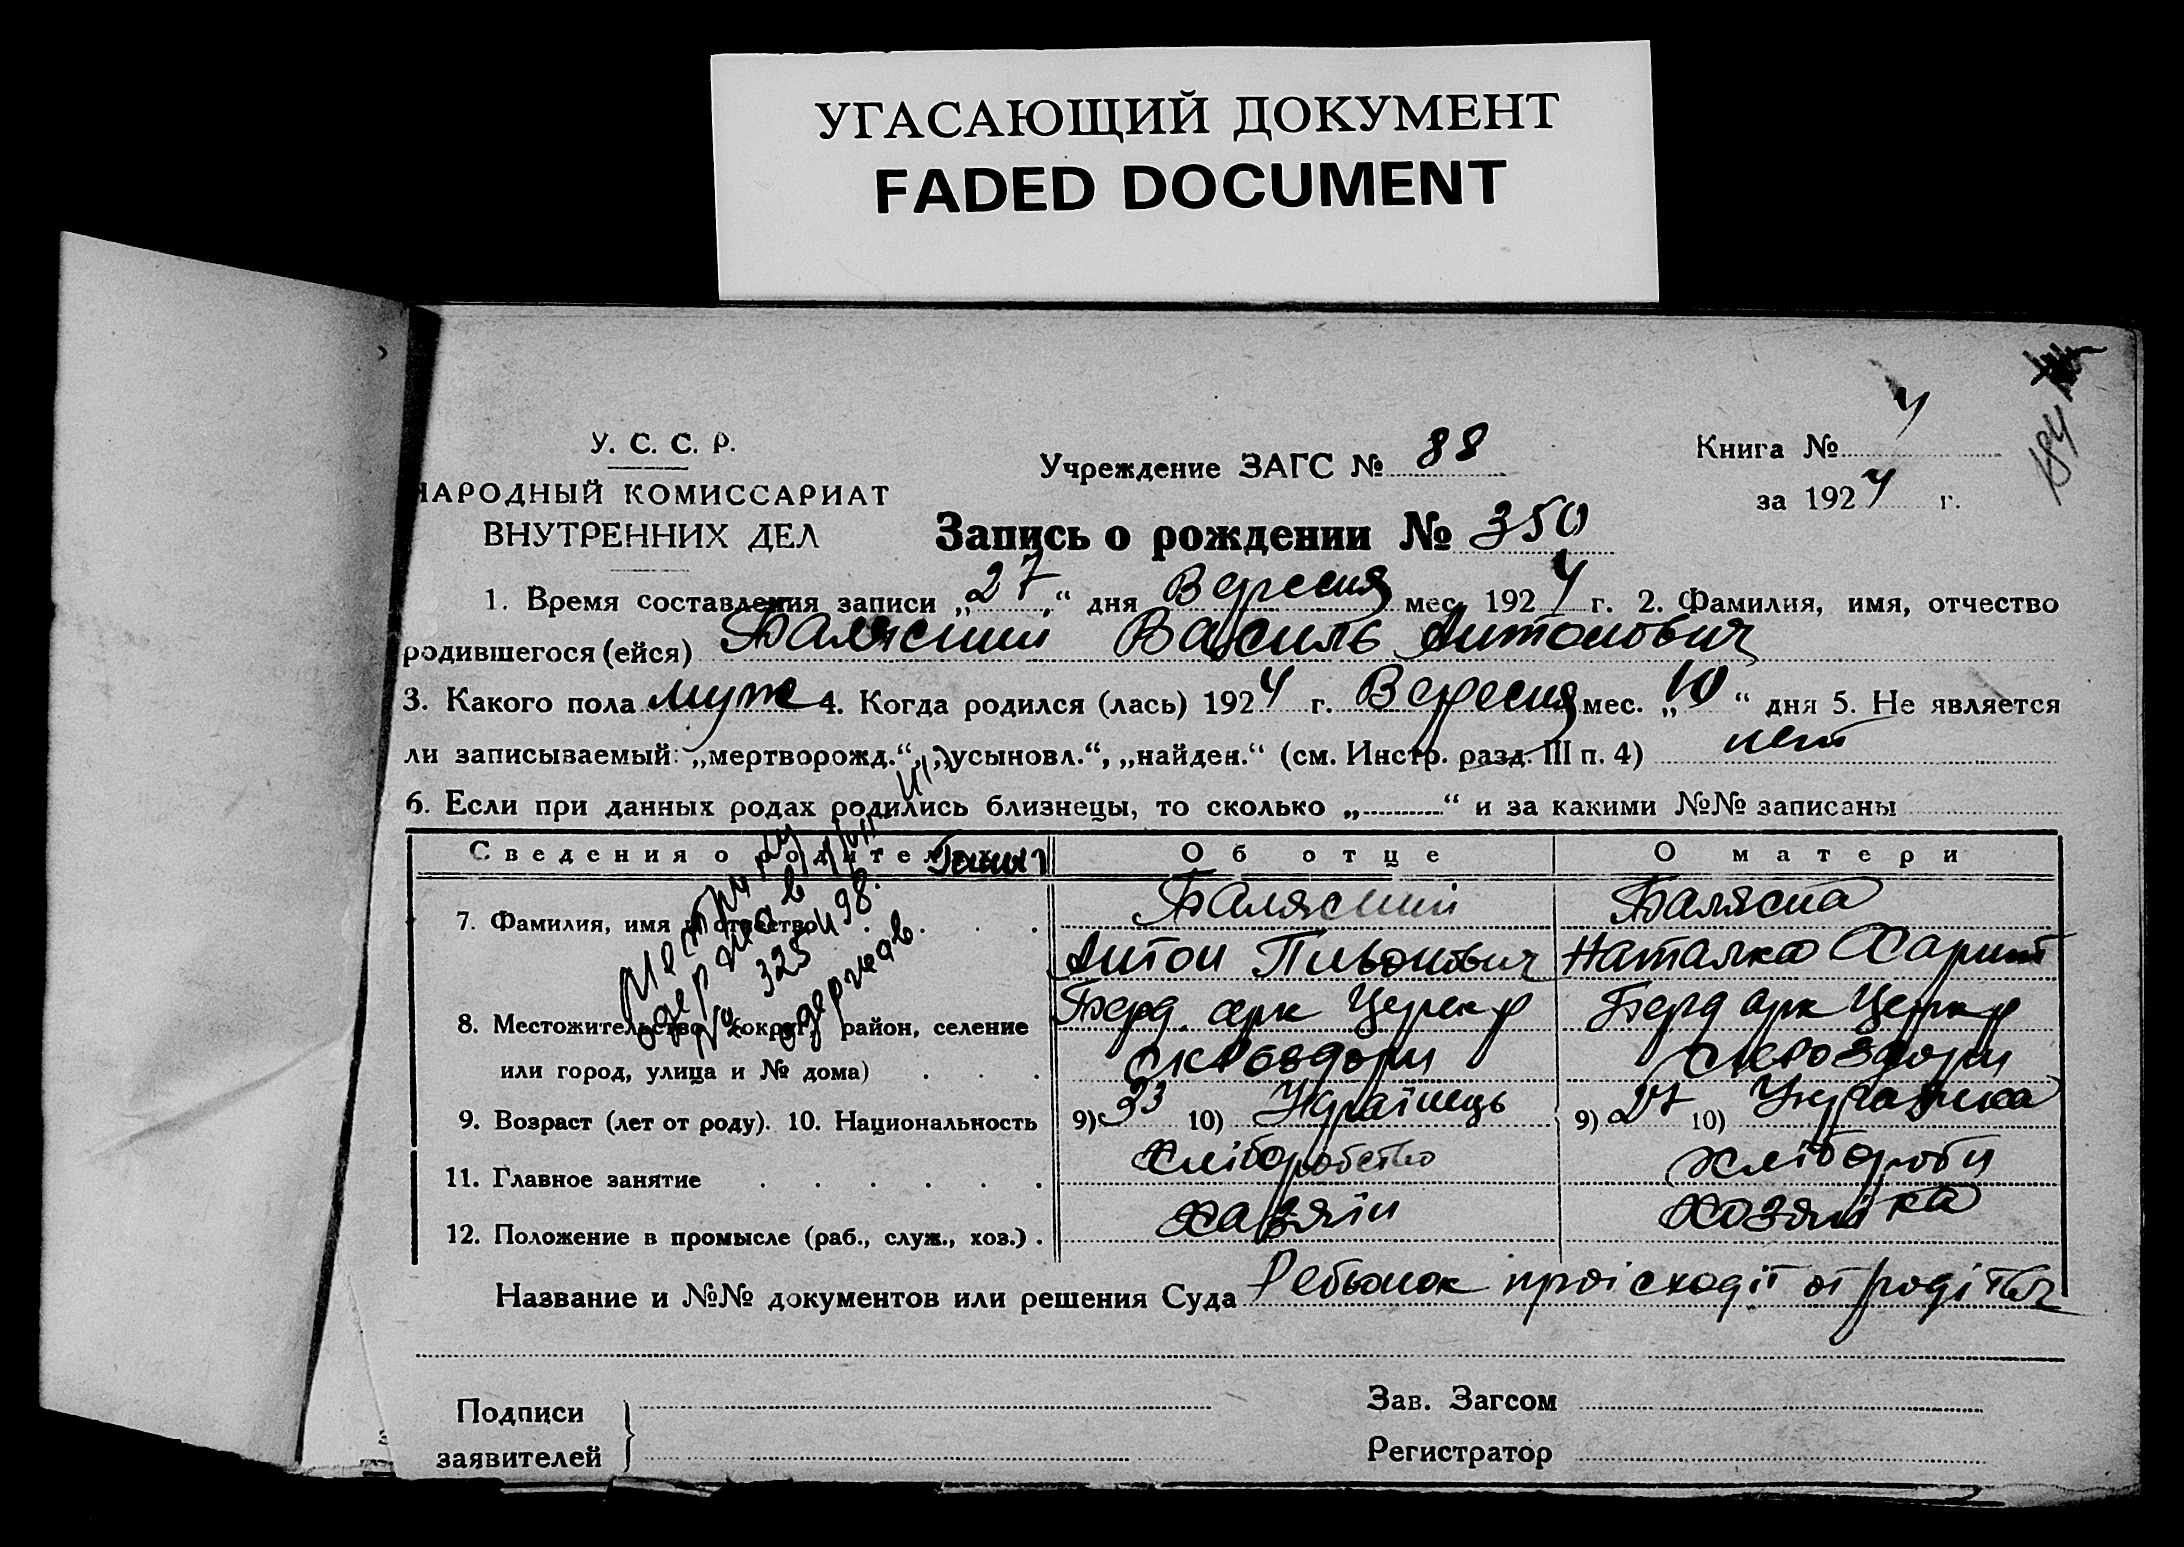 УГАСАЮЩИЙ ДОКУМЕНТ
FADED DOCUMENT
184
У. С. С. Р.
НАРОДНЫЙ КОМИССАРИАТ
ВНУТРЕННИХ ДЕЛ
Учреждение ЗАГС № 88
Книга № 4
за 1924 г.
Запись о рождении № 350
1. Время составления записи „27“ дня Вересня мес. 1924 г. 2. Фамилия, имя, отчество
родившегося (ейся) Балясний Василь Антонович
3. Какого пола муж 4. Когда родился (лась) 1924 г. Вересня мес. „10“ дня 5. Не является
ли записываемый: „мертворожд.“, „усыновл.“, „найден.“ (см. Инстр. разд. III п. 4) нет
6. Если при данных родах родились близнецы, то сколько „..........“ и за какими №№ записаны
Сведения о родителях Об отце О матери
7. Фамилия, имя и отчество Балясний Балясна
Антон Пивонович Наталка Харит
8. Местожительство (округ, район, селение Берд. окр Церк р Берд окр Церк р
или город, улица и № дома)
9. Возраст (лет от роду). 10. Национальность 9) 33 10) Українець 9) 27 10) Українка
11. Главное занятие хліборобство хлібороби
12. Положение в промысле (раб., служ., хоз.) хазяїн хозяйка
метрику
одержав
№ 325498.
одержав.
Название и №№ документов или решения Суда Ребьонок проісходіт от родітел
Подписи
заявителей
Зав. Загсом
Регистратор